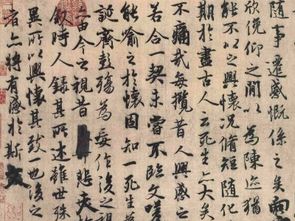 隨事遷感慨係之矣向
欣俛仰之閒以為陳迹猶
能不以之興懷況脩短隨化
期於盡古人云死生亦大矣
不痛哉每攬昔人興感
若合一契未嘗不臨文嗟
能喻之於懷固知一死生
誕齊彭殤為妄作後之視
亦由今之視昔悲夫
敘時人錄其所述雖世殊
異所以興懷其致一也後之
者亦將有感於斯文